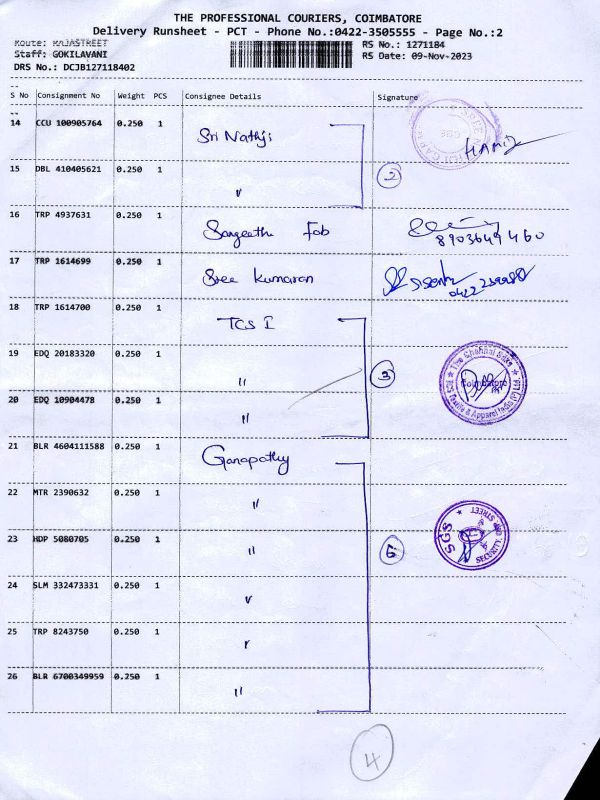 THE PROFESSIONAL COURIERS, COIMBATORE
Delivery Runsheet - PCT - Phone No.:0422-3505555 - Page No.:2
Route: RAJASTREET
Staff: GOKILAVANI
DRS No.: DCJB127118402
RS No.: 1271184
RS Date: 09-Nov-2023
S No Consignment No Weight PCS Consignee Details Signature
14 CCU 100905764 0.250 1 Sri Nathji HAMID
15 DBL 410405621 0.250 1 〃 2
16 TRP 4937631 0.250 1 Sangeetha Fab 8903649460
17 TRP 1614699 0.250 1 Sree Kumaran
18 TRP 1614700 0.250 1 TCS I
19 EDQ 20183320 0.250 1 〃 3 The Chennai Silks Coimbatore
20 EDQ 10904478 0.250 1 〃
21 BLR 4604111588 0.250 1 Ganapathy
22 MTR 2390632 0.250 1 〃
23 HDP 5080705 0.250 1 〃 SGS SECURITY
24 SLM 332473331 0.250 1 〃
25 TRP 8243750 0.250 1 〃
26 BLR 6700349959 0.250 1 〃
4